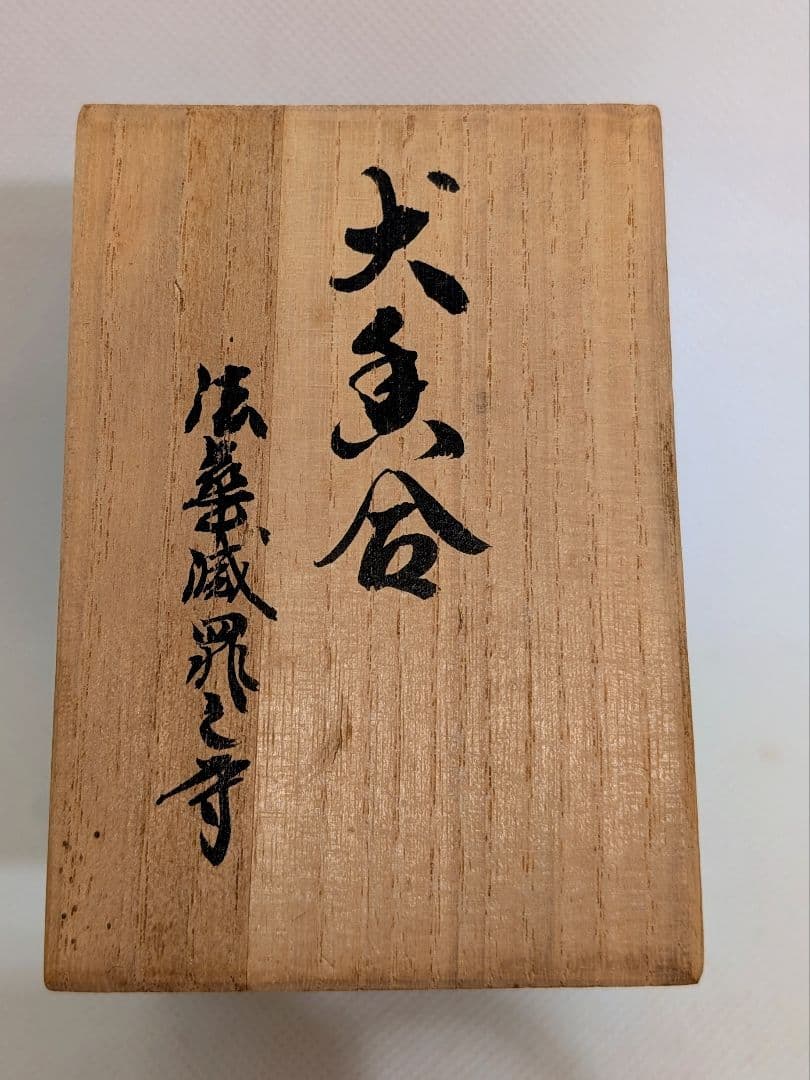 犬香合
法華滅罪之寺